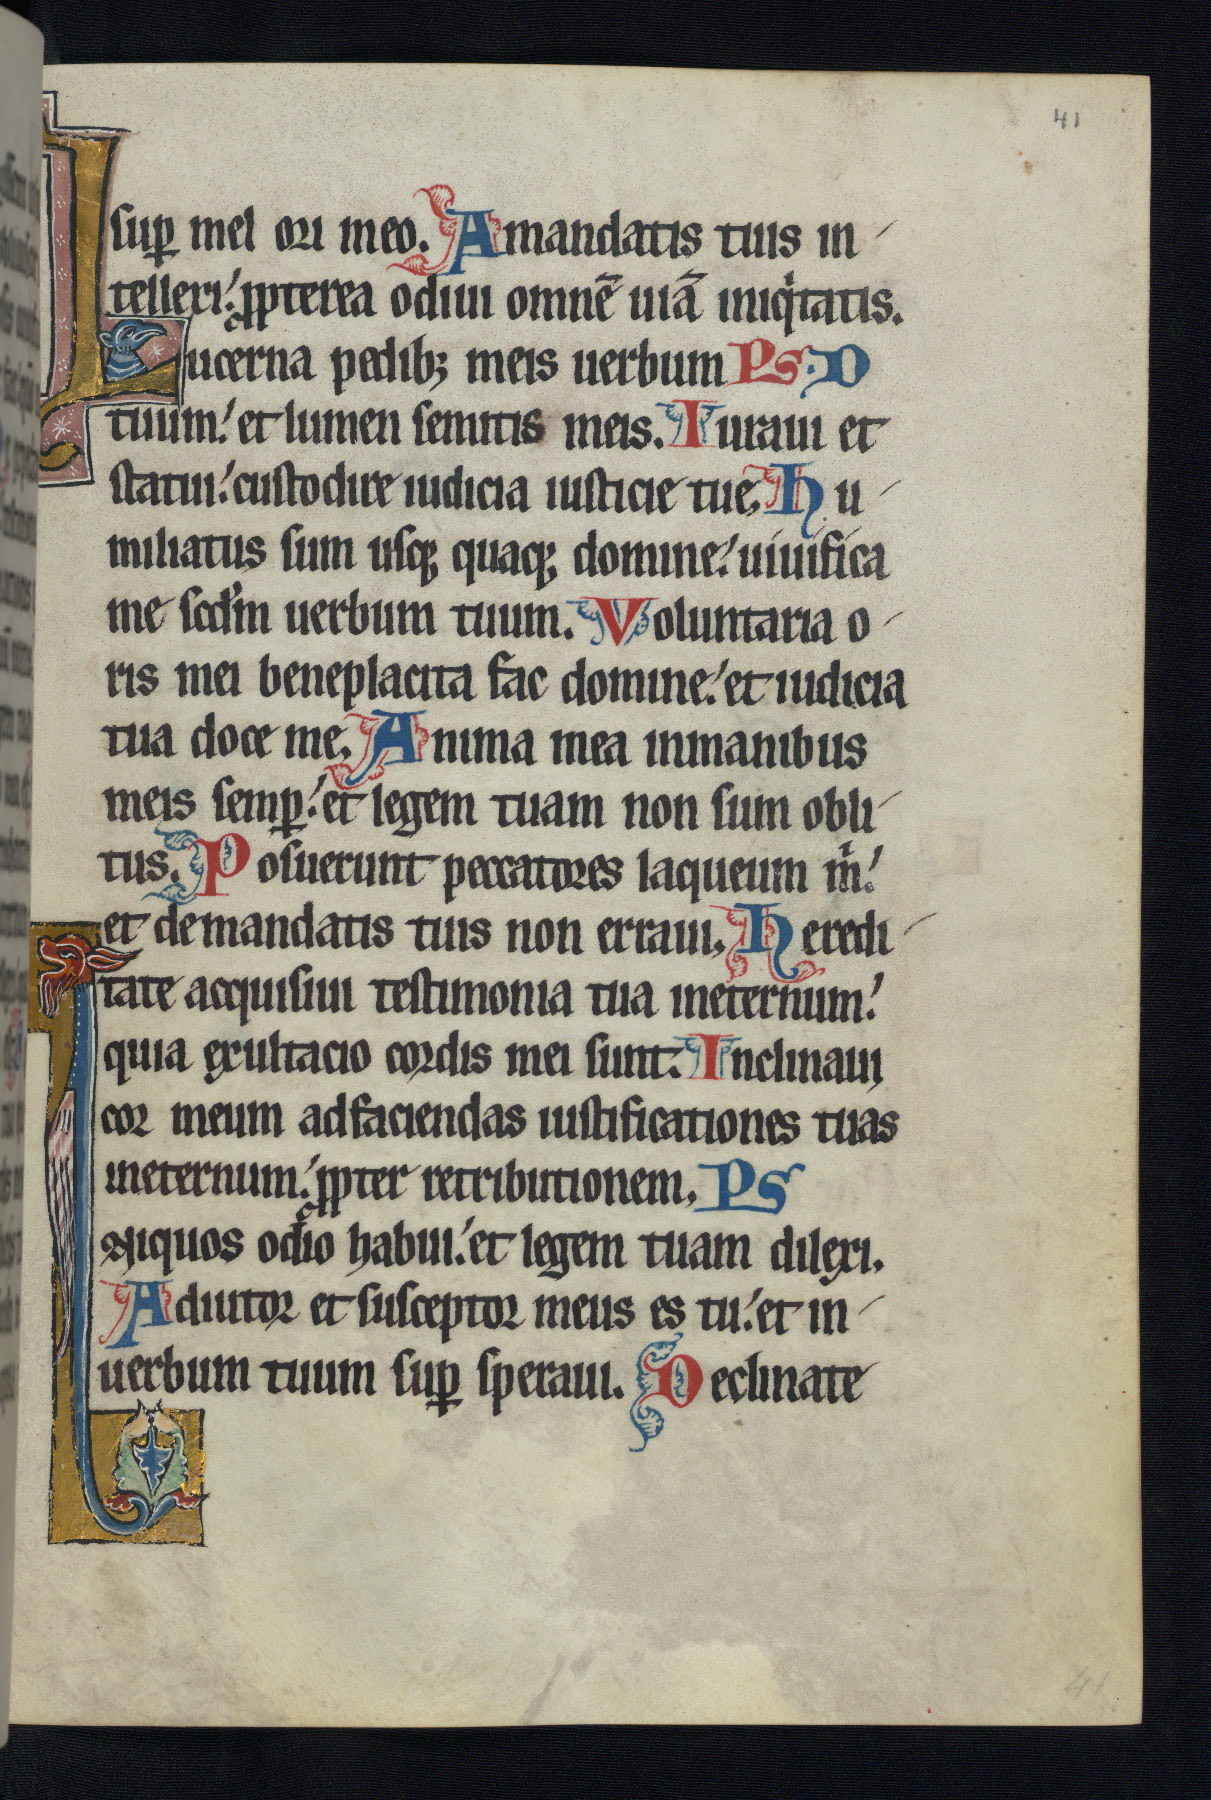 41
sup̱ mel ori meo. A mandatis tuis in
tellexi: ꝓpterea odiui omnē uiā iniqͥtatis.
Lucerna pedib; meis uerbum PS. D
tuum: et lumen semitis meis. Iuraui et
statui: custodire iudicia iusticie tuę. Hu
miliatus sum usq; quaq; domine: uiuifica
me scd'm uerbum tuum. Voluntaria o
ris mei beneplacita fac domine: et iudicia
tua doce me. Anima mea inmanibus
meis semp̱: et legem tuam non sum obli
tus. Posuerunt peccatores laqueum m̍:
et demandatis tuis non erraui. Heredi
tate acquisiui testimonia tua ineternum:
quia exultacio cordis mei sunt. Inclinaui
cor meum adfaciendas iustificationes tuas
ineternum: ꝓpter retributionem. PS
Iniquos odio habui: et legem tuam dilexi.
Adiutor et susceptor meus es tu: et in
uerbum tuum sup̱ speraui. Declinate
41